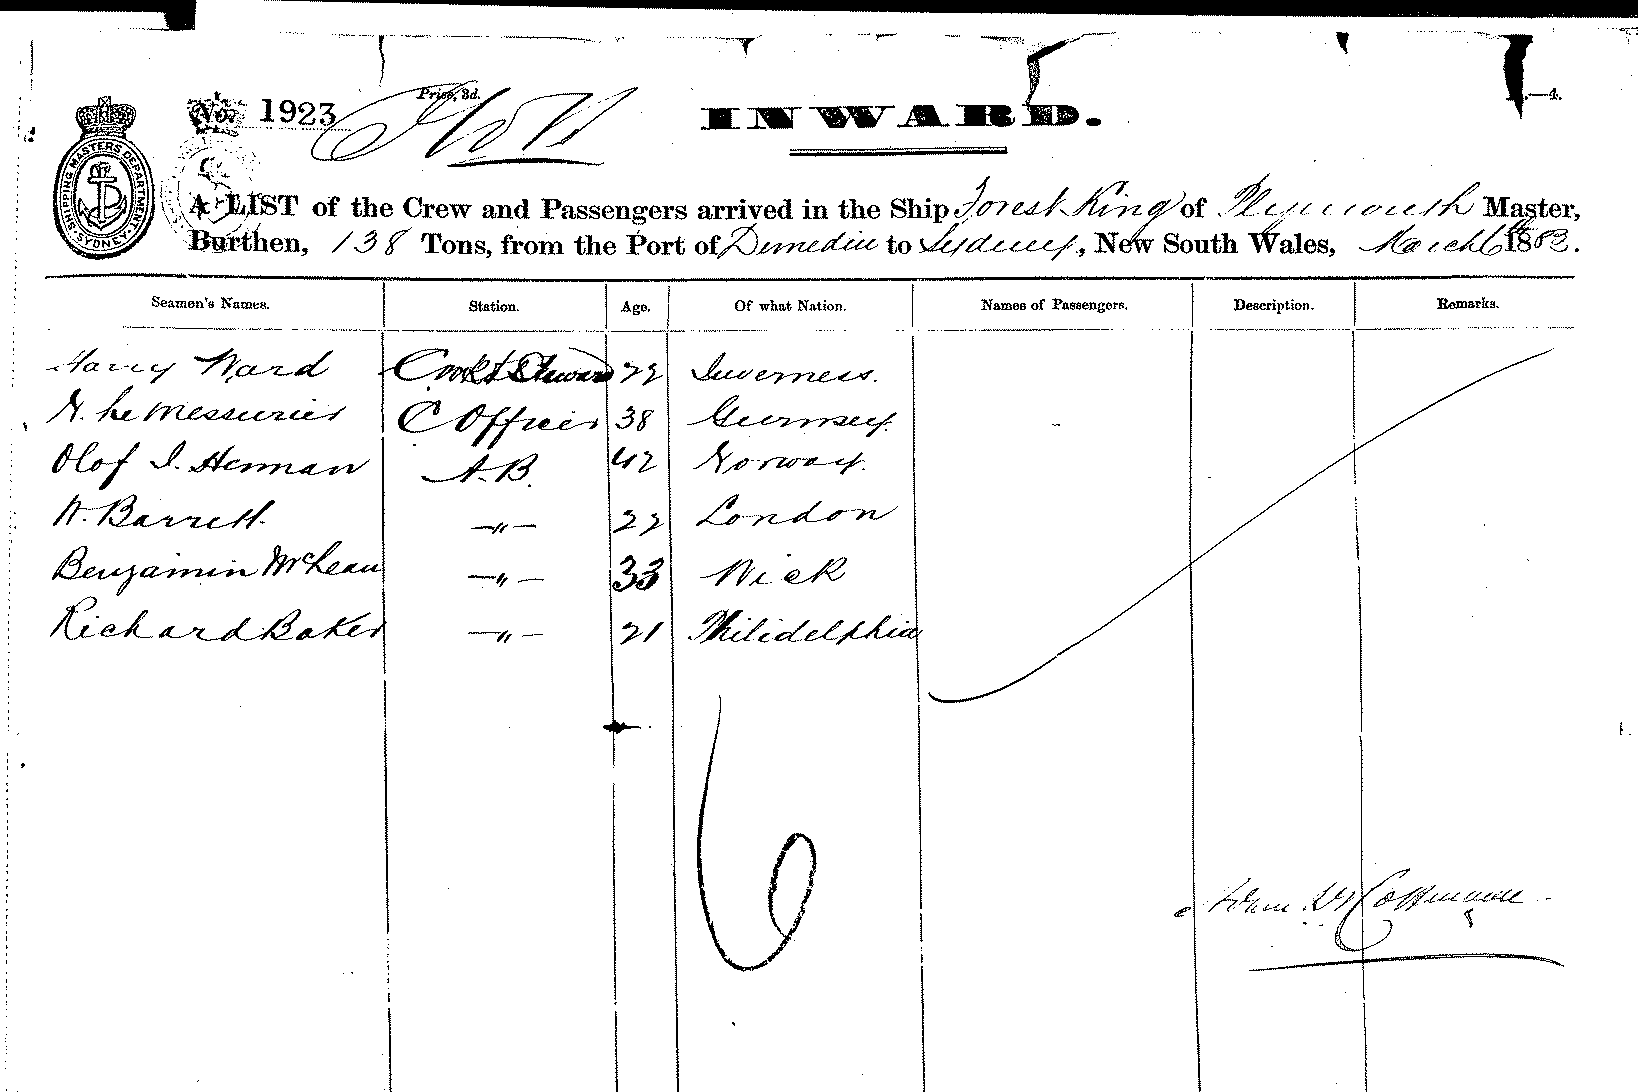 No. 1923
Price, 3d.
INWARD.
—4.
SHIPPING MASTERS DEPARTMENT SYDNEY
A LIST of the Crew and Passengers arrived in the Ship Forest King of Plymouth Master,
Burthen, 138 Tons, from the Port of Dunedin to Sydney, New South Wales, March 6th 1883.
Seamen's Names. Station. Age. Of what Nation. Names of Passengers. Description. Remarks.
Harry Ward Cook & Steward 22 Inverness.
N. Le Messurier C Officer 38 Guernsey.
Olof I. Herman A.B. 42 Norway.
W. Barrett. —"— 22 London
Benjamin McLean —"— 33 Wick
Richard Baker —"— 21 Philidelphia
6